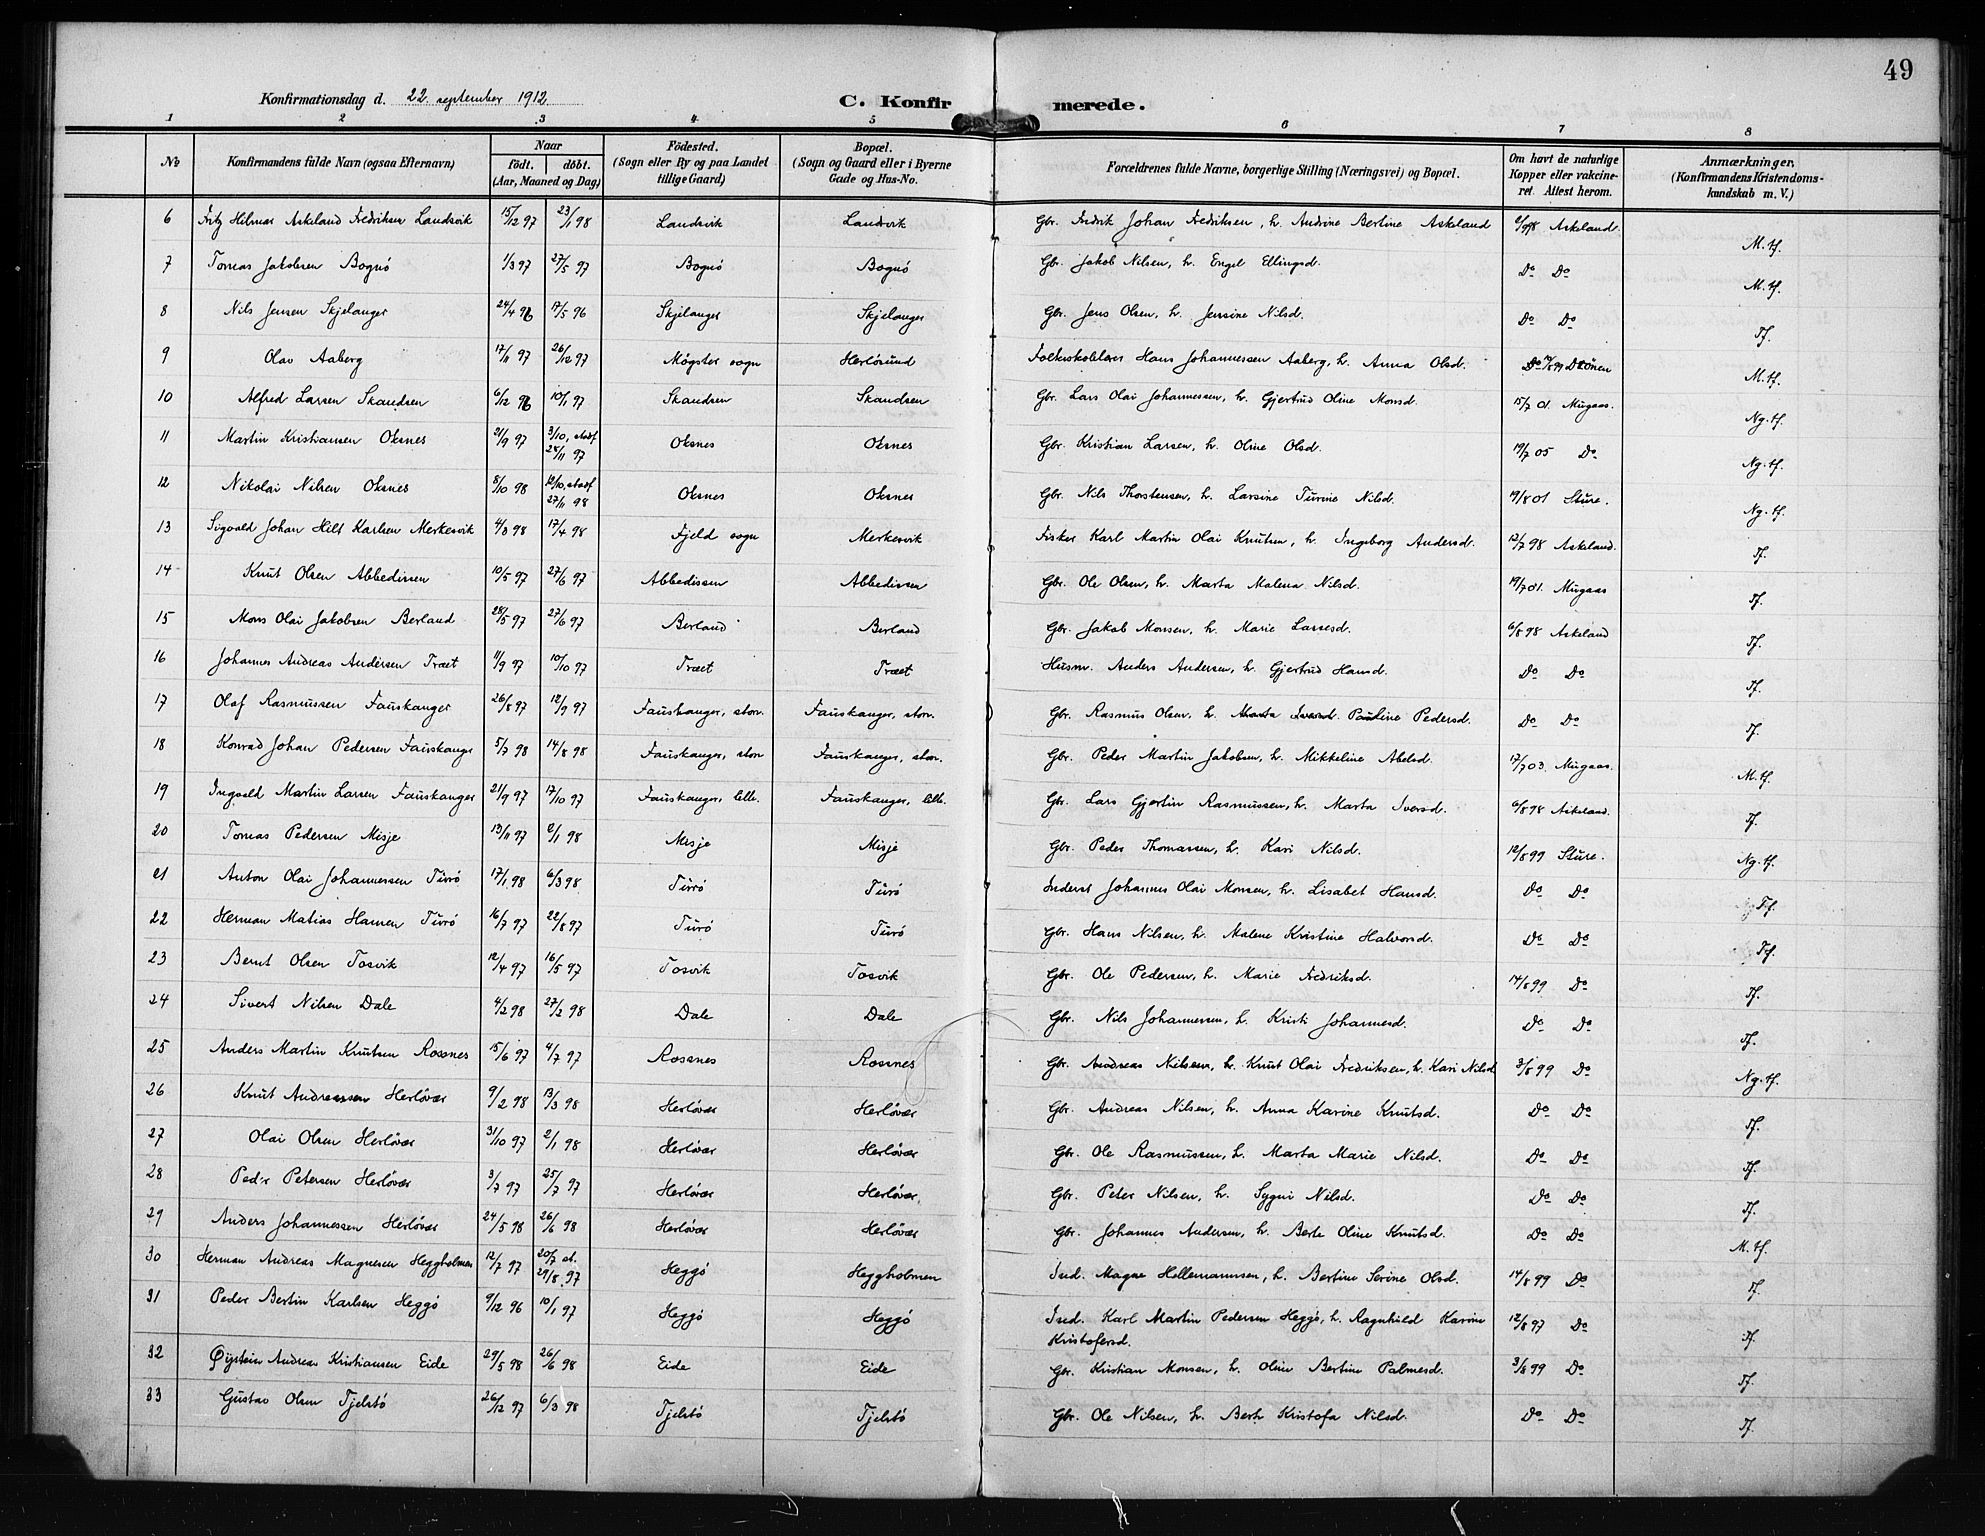 49
Konfirmationsdag d. 22. september 1912. C. Konfirmerede.
1 2 3 4 5 6 7 8
No Konfirmandens fulde Navn (ogsaa Efternavn) Naar Fødested. Bopæl. Forældrenes fulde Navne, borgerlige Stilling (Næringsvei) og Bopæl. Om havt de naturlige Anmærkninger,
født. døbt. (Sogn eller By og paa Landet (Sogn og Gaard eller i Byerne Kopper eller vakcine- (Konfirmandens Kristendoms-
(Aar, Maaned og Dag) tillige Gaard) Gade og Hus-No. ret. Attest herom. kundskab m. V.)
6 Fritz Hilmar Askeland Fredriksen Landsvik 15/12 97 23/1 98 Landsvik Landsvik Gbr. Fredrik Johan Fredriksen, h. Andrine Bertine Askeland 6/8 98 Askeland. M. tf.
7 Tomas Jakobsen Bognö 1/3 97 27/5 97 Bognö Bognö Gbr. Jakob Nilsen, h. Engel Ellingsd. Do Do M. tf.
8 Nils Jensen Skjelanger 24/4 96 17/5 96 Skjelanger Skjelanger Gbr. Jens Olsen, h. Jensine Nilsd. Do Do Tf.
9 Olav Aaberg 17/11 97 26/12 97 Mögster sogn Herlösund Folkeskolelærer Hans Johannessen Aaberg, h. Anna Olsd. M. tf.
10 Alfred Larsen Skandsen 6/12 96 10/1 97 Skandsen Skandsen Gbr. Lars Olai Johannessen, h. Gjertrud Oline Monsd. 15/7 01. Mugaas. Ng. tf.
11 Martin Kristiansen Oksnes 21/9 97 3/10, stadf 28/11 97 Oksnes Oksnes Gbr. Kristian Larsen, h. Oline Olsd. 19/7 05 Do Ng. tf.
12 Nikolai Nilsen Oksnes 8/10 98 12/10, stadf 27/11 98 Oksnes Oksnes Gbr. Nils Thorstensen, h. Larsine Turine Nilsd. 19/8 01 Sture. Ng. tf.
13 Sigvald Johan Hilt Karlsen Merkesvik 4/3 98 17/4 98 Fjeld sogn Merkesvik Fisker Karl Martin Olai Knutsen, h. Ingeborg Andersd. 12/7 98 Askeland. Tf.
14 Knut Olsen Abbedissen 10/5 97 27/6 97 Abbedissen Abbedissen Gbr. Ole Olsen, h. Marta Malena Nilsd. 19/7 01. Mugaas Tf.
15 Mons Olai Jakobsen Berland 28/5 97 27/6 97 Berland Berland Gbr. Jakob Monsen, h. Marie Larsesd. 6/8 98 Askeland Tf.
16 Johannes Andreas Andersen Træet 11/9 97 10/10 97 Træet Træet Husm. Anders Andersen, h. Gjertrud Hansd. Do Do Tf.
17 Olaf Rasmussen Fauskanger 26/8 97 12/9 97 Fauskanger, stor. Fauskanger, stor. Gbr. Rasmus Olsen, h. Marta Iversd. Pauline Pedersd. Do Do Tf.
18 Konrad Johan Pedersen Fauskanger 5/7 98 14/8 98 Fauskanger, stor Fauskanger, stor. Gbr. Peder Martin Jakobsen, h. Mikkeline Abelsd. 17/7 03. Mugaas. M. tf.
19 Ingvald Martin Larsen Fauskanger 21/9 97 17/10 97 Fauskanger, lille. Fauskanger, lille. Gbr. Lars Gjertin Rasmussen, h. Marta Iversd. 6/8 98 Askeland. Tf.
20 Tomas Pedersen Misje 13/11 97 2/1 98 Misje Misje Gbr. Peder Thomassen, h. Kari Nilsd. 12/8 99 Sture. Ng. tf.
21 Anton Olai Johannessen Turö 17/1 98 6/3 98 Turö Turö Inderst Johannes Olai Monsen, h. Lisabet Hansd. Do Do Tf.
22 Herman Matias Hansen Turö 16/7 97 22/8 97 Turö Turö Gbr. Hans Nilsen, h. Malene Kristine Halvorsd. Do Do Tf.
23 Bernt Olsen Tosvik 12/4 97 16/5 97 Tosvik Tosvik Gbr. Ole Pedersen, h. Marie Fredriksd. 14/8 99 Do Tf.
24 Sivert Nilsen Dale 4/2 98 27/2 98 Dale Dale Gbr. Nils Johannessen, h. Kristi Johannesd. Do Do Tf.
25 Anders Martin Knutsen Rossnes 15/6 97 4/7 97 Rossnes Rossnes Gbr. Andreas Nilsen, h. Knut Olai Fredriksen, h. Kari Nilsd 3/8 99 Do Ng. tf.
26 Knut Andreassen Herlövær 9/2 98 13/3 98 Herlövær Herlövær Gbr. Andreas Nilsen, h. Anna Karine Knutsd. Do Do Tf.
27 Olai Olsen Herlövær 31/10 97 2/1 98 Herlövær Herlövær Gbr. Ole Rasmussen, h. Marta Marie Nilsd. Do Do Tf.
28 Peder Petersen Herlövær 3/7 97 25/7 97 Herlövær Herlövær, Gbr. Peter Nilsen, h. Sygni Nilsd. Do Do Tf.
29 Anders Johannessen Herlövær 24/5 98 26/6 98 Herlövær Herlövær Gbr. Johannes Andersen, h. Berte Oline Knutsd. Do Do M. tf.
30 Herman Andreas Magnesen Heggholmen 12/7 97 20/7 st. 29/8 97 Heggö Heggholmen Ind. Magne Hellemannsen, h. Bertine Serine Olsd. 14/8 99 Do Tf.
31 Peder Bertin Karlsen Heggö 9/12 96 10/1 97 Heggö Heggö Ind. Karl Martin Pedersen Heggö, h. Ragnhild Karine 12/8 97 Do Tf.
Kristofersd.
32 Øystein Andreas Kristiansen Eide 29/5 98 26/6 98 Eide Eide Gbr. Kristian Monsen, h. Oline Bertine Palmesd. 3/8 99 Do Tf.
33 Gustav Olsen Tjelstö 26/12 97 6/3 98 Tjelstö Tjelstö Gbr. Ole Nilsen, h. Berte Kristofa Nilsd. Do Do Tf.